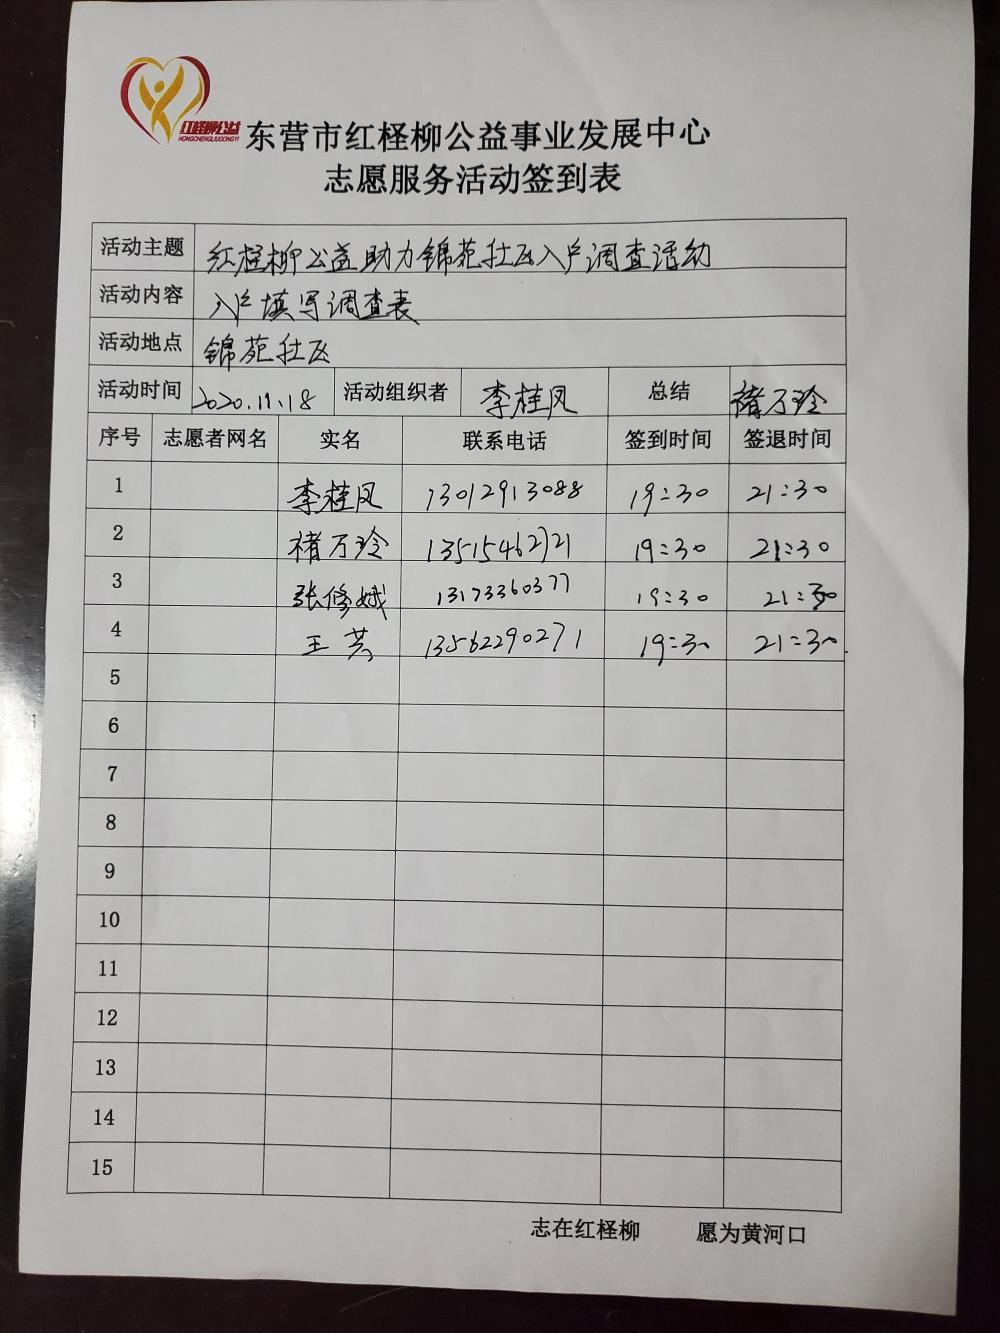 红柽柳公益
HONGCHENGLIUGONGYI
东营市红柽柳公益事业发展中心
志愿服务活动签到表
活动主题 红柽柳公益助力锦苑社区入户调查活动
活动内容 入户填写调查表
活动地点 锦苑社区
活动时间 2020.11.18 活动组织者 李桂凤 总结 褚万玲
序号 志愿者网名 实名 联系电话 签到时间 签退时间
1 李桂凤 13012913088 19:30 21:30
2 褚万玲 13515462721 19:30 21:30
3 张修娥 13173360377 19:30 21:30
4 王芸 13562290271 19:30 21:30
5
6
7
8
9
10
11
12
13
14
15
志在红柽柳 愿为黄河口